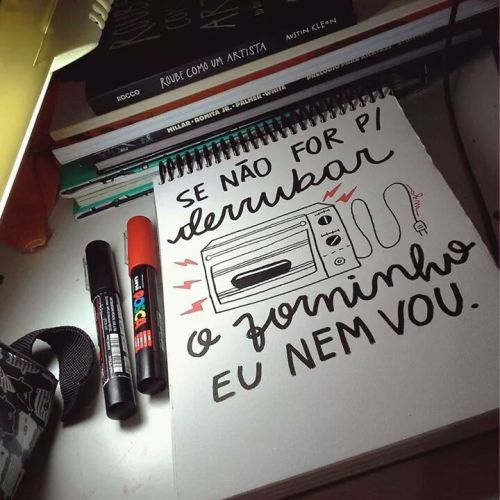 ROUBE COMO UM ARTISTA
AUSTIN KLEON
ROCCO
ROUBE COMO UM ARTISTA
MILLAR · ROMITA JR. · PALMER · WHITE
SE NÃO FOR P/
derrubar
o forninho
EU NEM VOU.
POSCA